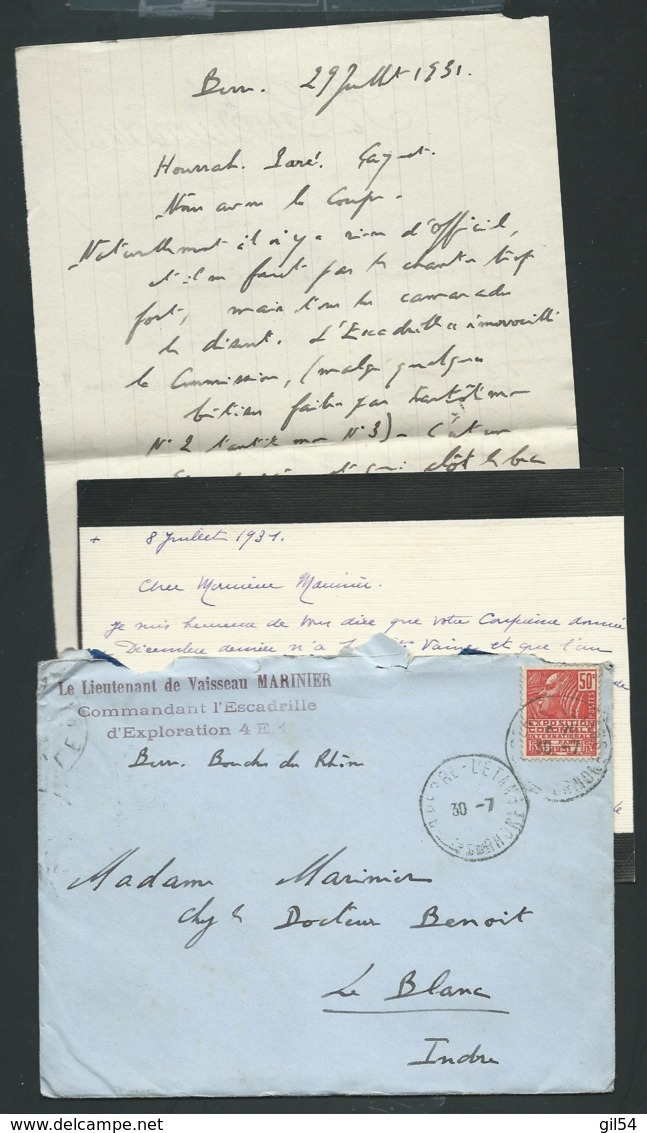 Berre. 29 Juillet 1931.
Hourrah. Paré. Gagné.
Nous avons la Coupe.
Naturellement il n'y a rien d'officiel,
et il ne faut pas le chanter trop
fort, mais tous les camarades
le disent. L'Escadrille a émerveillé
la Commission, (malgré quelques
bêtises faites par tantôt mon
N° 2 tantôt mon N° 3) - C'est un
et qui clôt le bec
+ 8 Juillet 1931.
Cher Monsieur Marinier.
Je suis heureuse de vous dire que votre Confiance donnée
Décembre dernier n'a Vaine et que l'un
de
Le Lieutenant de Vaisseau MARINIER
Commandant l'Escadrille
d'Exploration 4 E 1
Berre. Bouches du Rhône
50c
POSTES
EXPOSITION
COLONIALE
INTERNATIONALE
PARIS 1931
30 -7
BERRE-L'ETANG
30 -7
Madame Marinier
chez le Docteur Benoit
Le Blanc
Indre
delcampe.net
gil54